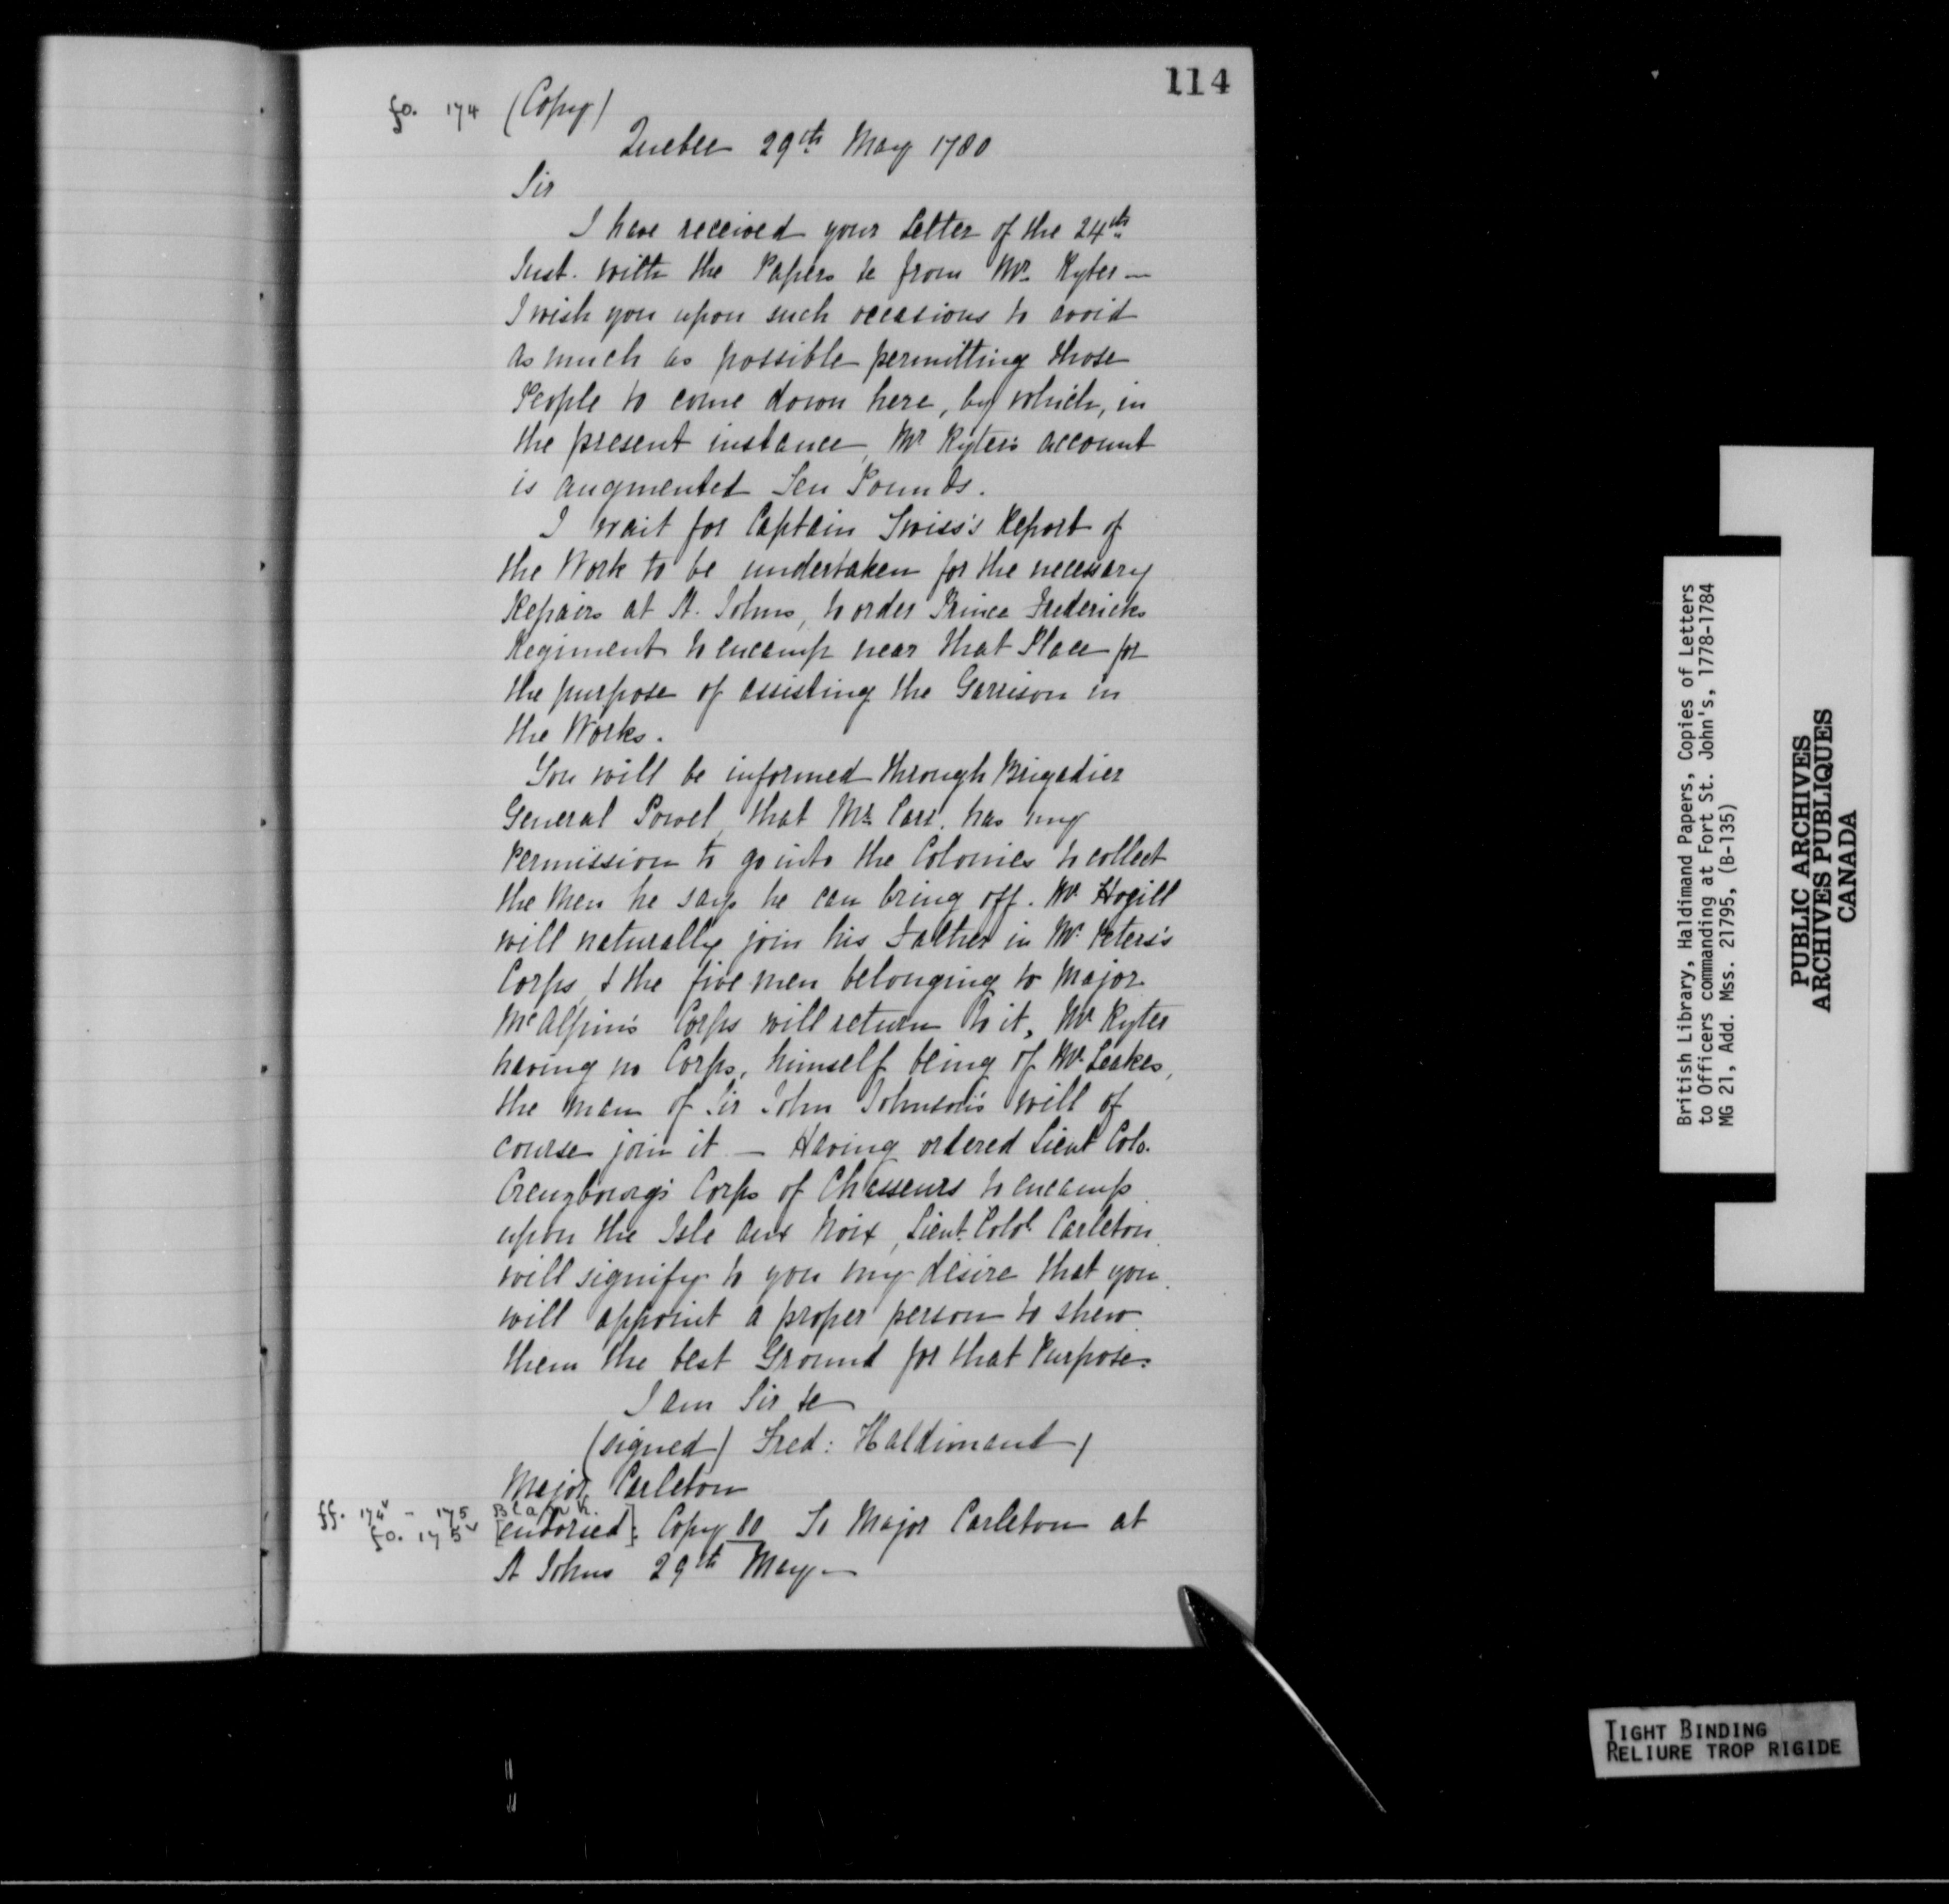 114
fo. 174 (Copy)
Quebec 29th May 1780
Sir
I have received your Letter of the 24th
Inst. with the Papers &c from Mr. Ryter —
I wish you upon such occasions to avoid
as much as possible permitting those
People to come down here, by which, in
the present instance, Mr Ryter's account
is augmented Ten Pounds.
I wait for Captain Twiss's Report of
the Work to be undertaken for the necessary
Repairs at St. Johns, to order Prince Fredericks
Regiment to encamp near that Place for
the purpose of assisting the Garrison in
the Works.
You will be informed through Brigadier
General Powel, that Mr. Carr. has my
Permission to go into the Colonies to collect
the Men he says he can bring off. Mr. Hogill
will naturally join his Father in Mr. Peters's
Corps, & the five men belonging to Major
McAlpin's Corps will return to it, Mr Ryter
having no Corps, himself being of Mr. Leakes,
the man of Sir John Johnson's will of
course join it — Having ordered Lieut Colo.
Creuzbourg's Corps of Chasseurs to encamp
upon the Isle aux Noix, Lieut. Colol. Carleton
will signify to you my desire that you
will appoint a proper person to shew
them the best Ground for that Purpose.
I am Sir &c
(signed) Fred: Haldimand /
Major Carleton
ff. 174v - 175 Blank.
fo. 175v [endorsed]: Copy 80 To Major Carleton at
St Johns 29th May —
British Library, Haldimand Papers, Copies of Letters
to Officers commanding at Fort St. John's, 1778-1784
MG 21, Add. Mss. 21795, (B-135)
PUBLIC ARCHIVES
ARCHIVES PUBLIQUES
CANADA
TIGHT BINDING
RELIURE TROP RIGIDE